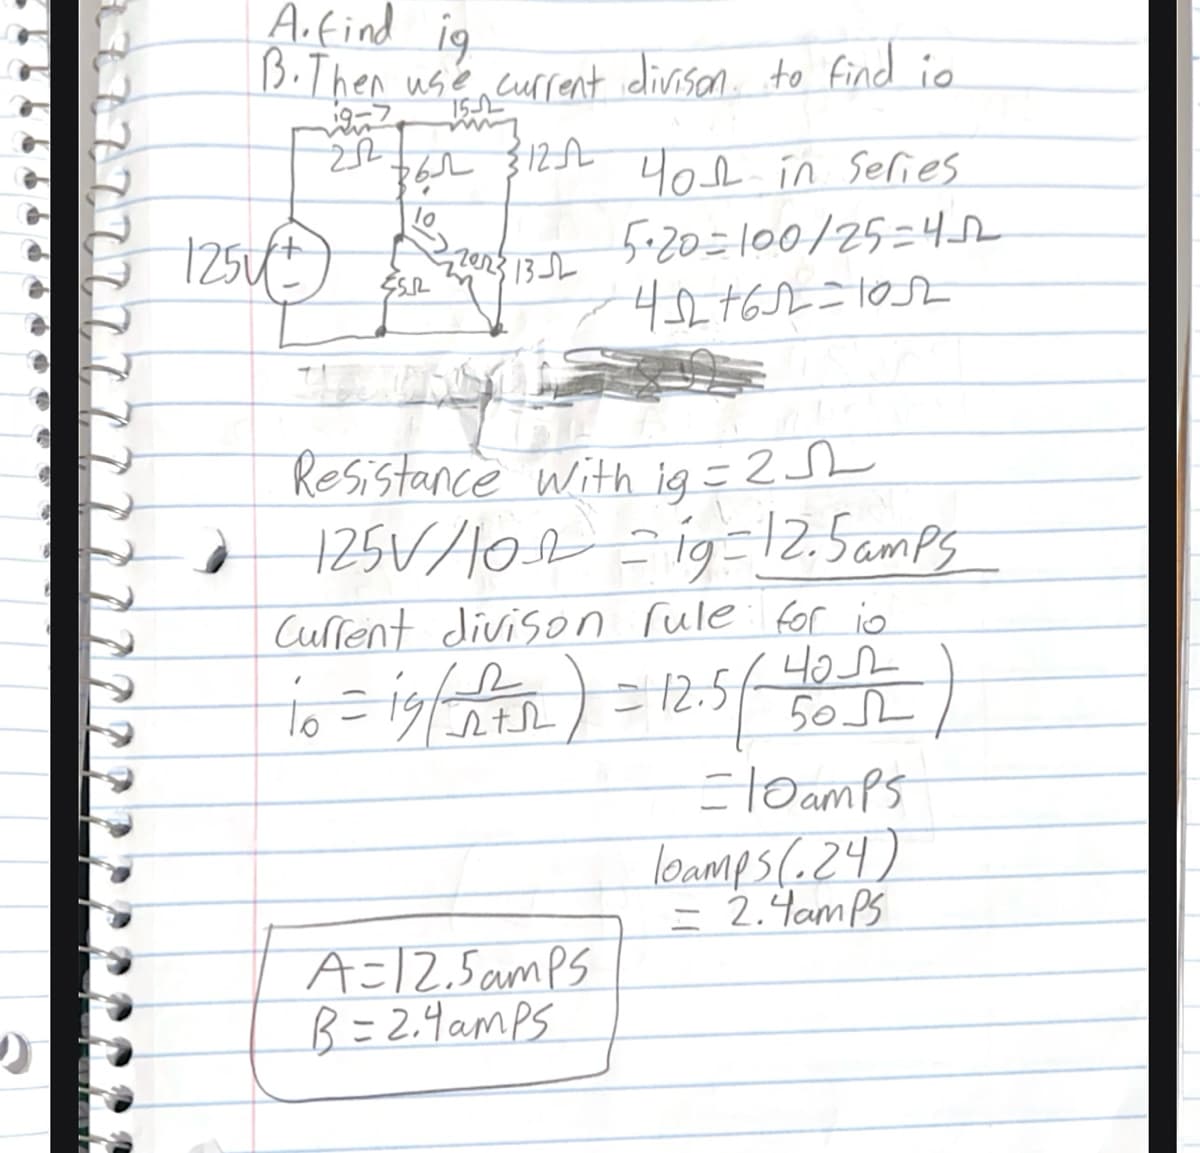 A. find ig
B. Then use current divison. to find io
ig->
15Ω
2Ω
6Ω
12Ω
40Ω in Series
io
5·20=100/25=4Ω
125V
+
-
20Ω
13Ω
5Ω
4Ω+6Ω=10Ω
Resistance with ig=2Ω
125V/10Ω = ig=12.5amps
Current divison rule for io
io = ig(Ω/Ω+Ω) = 12.5(40Ω/50Ω)
=10amps
10amps(.24)
= 2.4amps
A=12.5amps
B=2.4amps